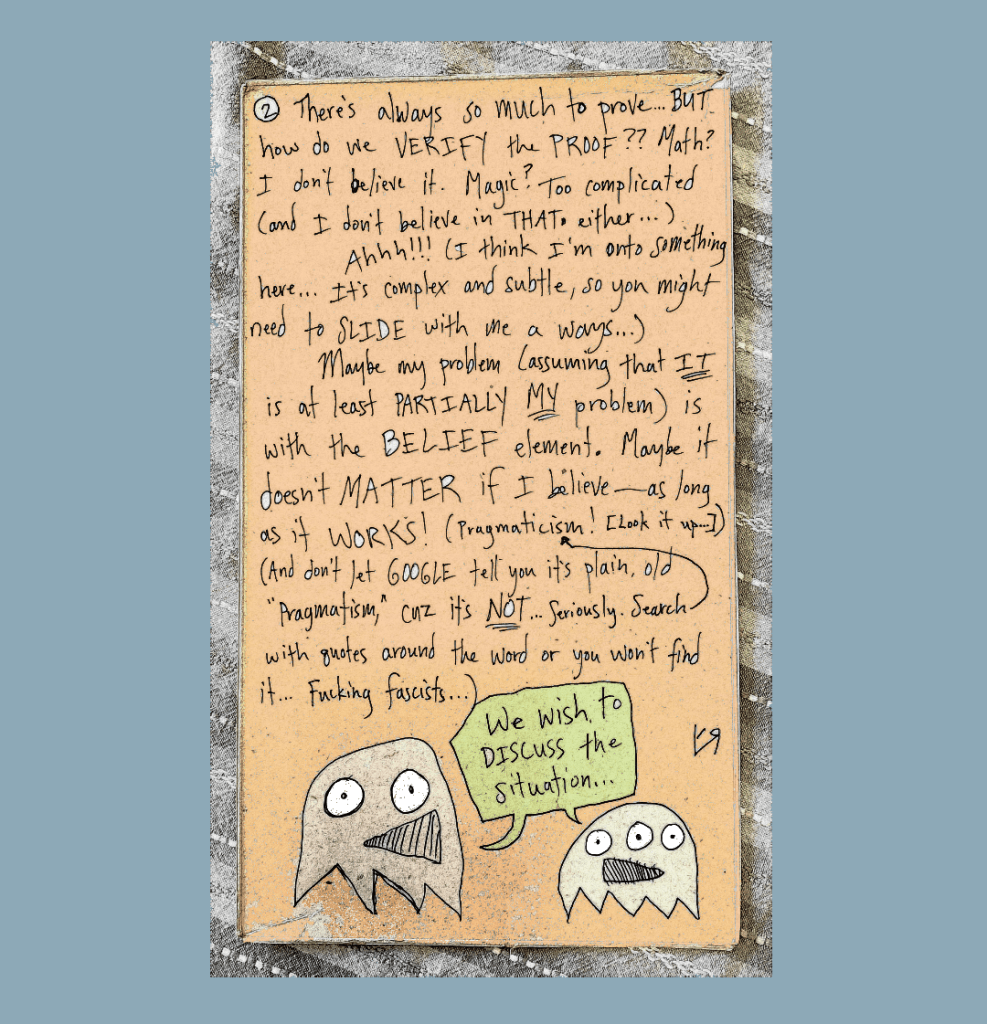 ② There's always so much to prove... BUT
how do we VERIFY the PROOF?? Math?
I don't believe it. Magic? Too complicated
(and I don't believe in THAT, either...)
Ahhh!!! (I think I'm onto something
here... It's complex and subtle, so you might
need to SLIDE with me a ways...)
Maybe my problem (assuming that IT
is at least PARTIALLY MY problem) is
with the BELIEF element. Maybe it
doesn't MATTER if I believe—as long
as it WORKS! (Pragmaticism! [Look it up...])
(And don't let GOOGLE tell you it's plain, old
"Pragmatism," cuz it's NOT... Seriously. Search
with quotes around the word or you won't find
it... Fucking fascists...)
We wish to
DISCUSS the
situation...